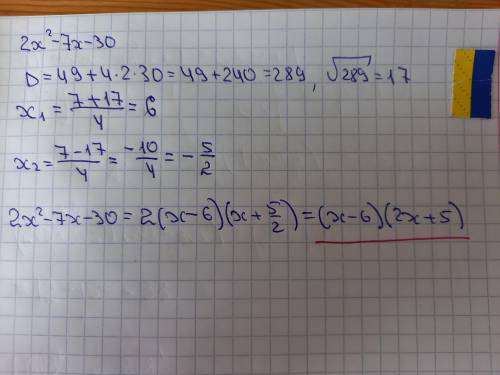 2x²-7x-30
D=49+4·2·30=49+240=289, √289=17
x₁=(7+17)/4=6
x₂=(7-17)/4=-10/4=-5/2
2x²-7x-30=2(x-6)(x+5/2)=(x-6)(2x+5)